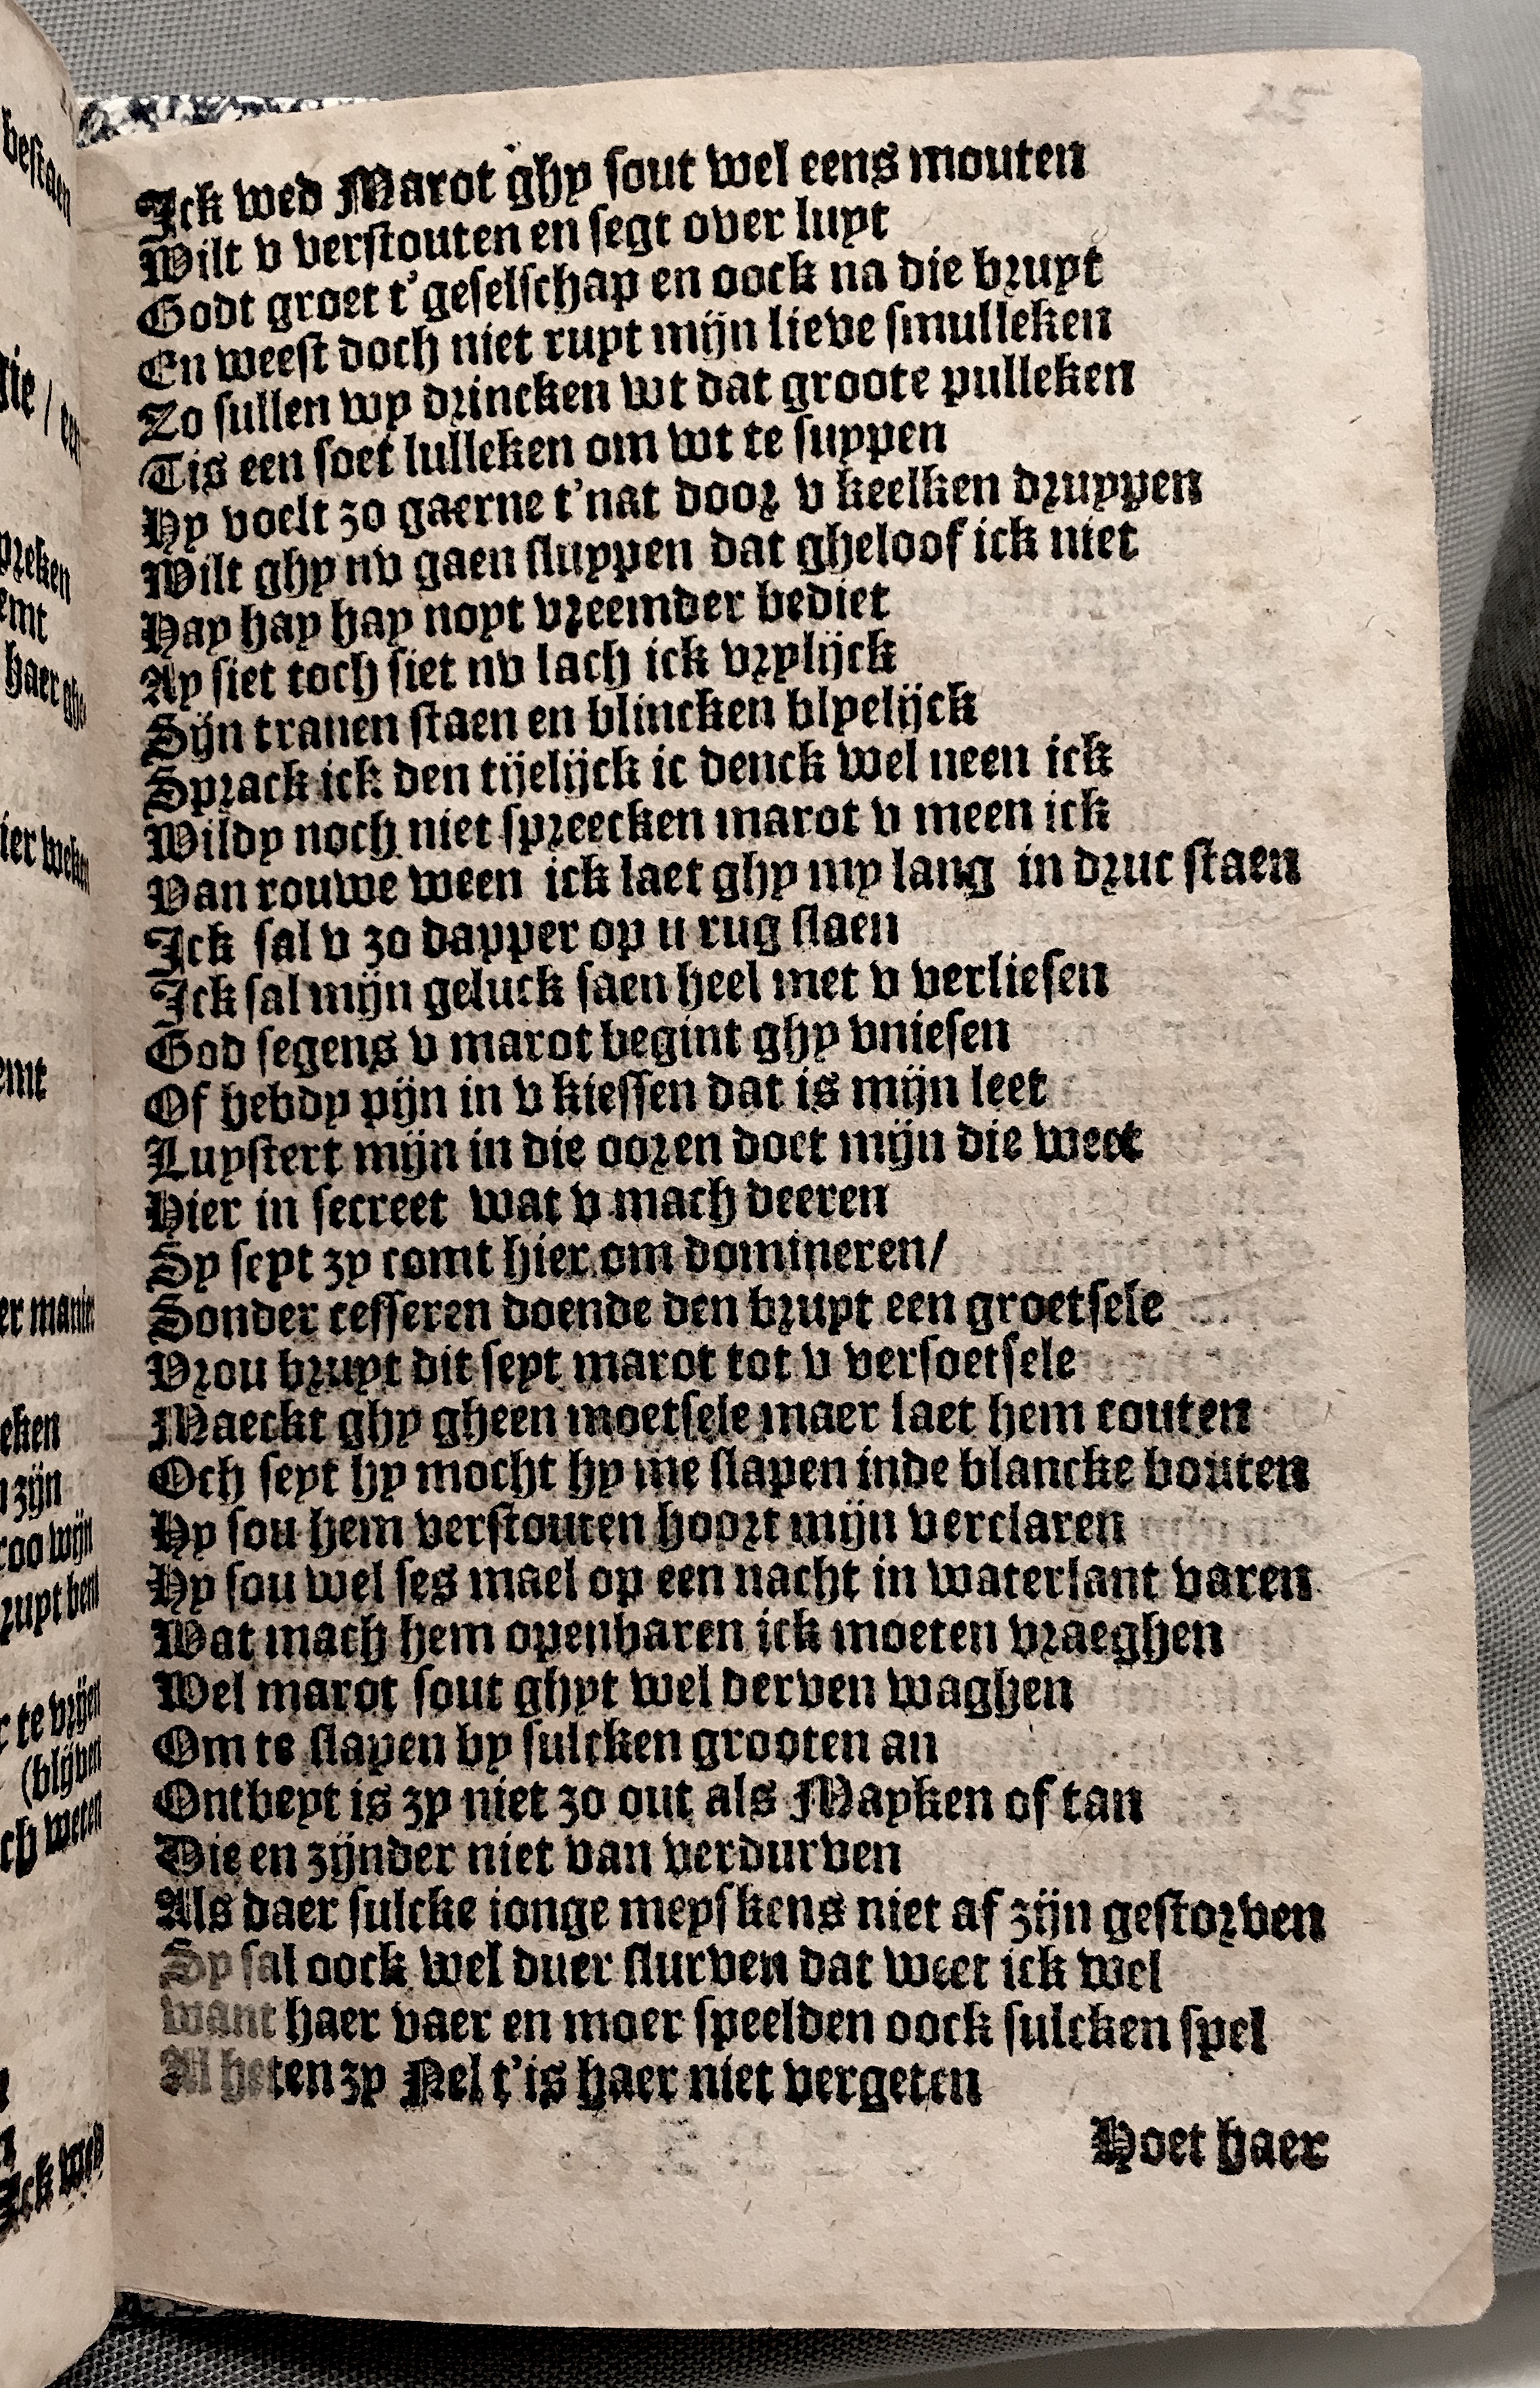 Ick wed Marot ghy sout wel eens mouten
Wilt v verstouten en segt over luyt
Godt groet t'geselschap en oock na die bruyt
En weest doch niet ruyt mijn lieve smulleken
Zo sullen wy drincken wt dat groote pulleken
Tis een soet lulleken om wt te suypen
Hy voelt zo gaerne t'nat door v keelken druypen
Wilt ghy nv gaen sluypen dat gheloof ick niet
Hay hay hay noyt vreemder bediet
Ay siet toch siet nv lach ick vrylijck
Sijn tranen staen en blincken blyelijck
Sprack ick den tijelijck ic denck wel neen ick
Wildy noch niet spreecken marot v meen ick
Van rouwe ween ick laet ghy my lang in druc staen
Ick sal v zo dapper op u rug slaen
Ick sal mijn geluck saen heel met v verliesen
God segens v marot begint ghy vniesen
Of hebdy pijn in v kiessen dat is mijn leet
Luystert mijn in die ooren doet mijn die weet
Hier in secreet wat v mach deeren
Sy seyt zy comt hier om domineren/
Sonder cesseren doende den bruyt een groetsele
Vrou bruyt dit seyt marot tot v versoetsele
Maeckt ghy gheen moetsele maer laet hem couten
Och seyt hy mocht hy me slapen inde blancke bouten
Hy sou hem verstouten hoort mijn verclaren
Hy sou wel ses mael op een nacht in waterlant varen
Wat mach hem openbaren ick moeten vraeghen
Wel marot sout ghyt wel derven waghen
Om te slapen by sulcken grooten an
Ontbeyt is zy niet zo out als Mayken of tan
Die en zijnder niet van verdurven
Als daer sulcke ionge meyskens niet af zijn gestorven
Sy sal oock wel duer slurven dat weet ick wel
want haer vaer en moer speelden oock sulcken spel
Al heten zy Nel t'is haer niet vergeten
Hoet haer